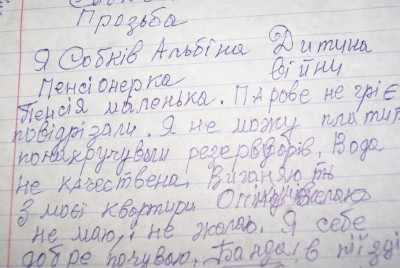 Прозьба
Я Собків Альбіна Дитина
Пенсіонерка війни
Пенсія маленька. Парове не гріє
повідрізали. Я не можу платит
понакручували резервдорів. Вода
не качествена. Виганяють
з моєї квартири
не маю, і не желаю. Я себе
добре почуваю. Банда в під'їзді